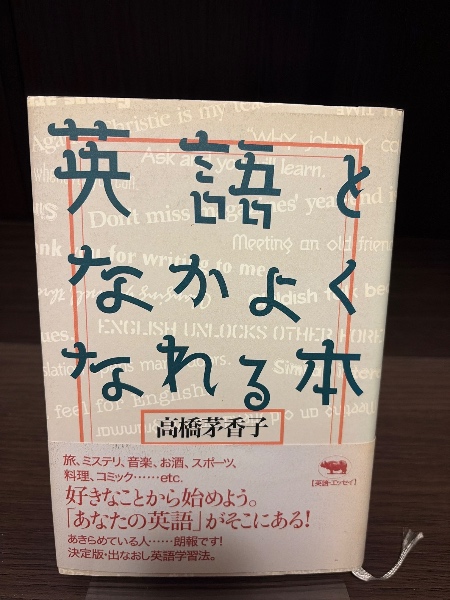 英語と
なかよく
なれる本
Christie is my
"WHY JOHNNY
Ask and you will learn.
Dont miss magazines' yearend
Meeting an old friend
for writing to me
ENGLISH UNLOCKS OTHER
feel for English
高橋茅香子
旅、ミステリ、音楽、お酒、スポーツ、
料理、コミック……etc.
好きなことから始めよう。
「あなたの英語」がそこにある!
あきらめている人……朗報です!
決定版・出なおし英語学習法。
【英語・エッセイ】